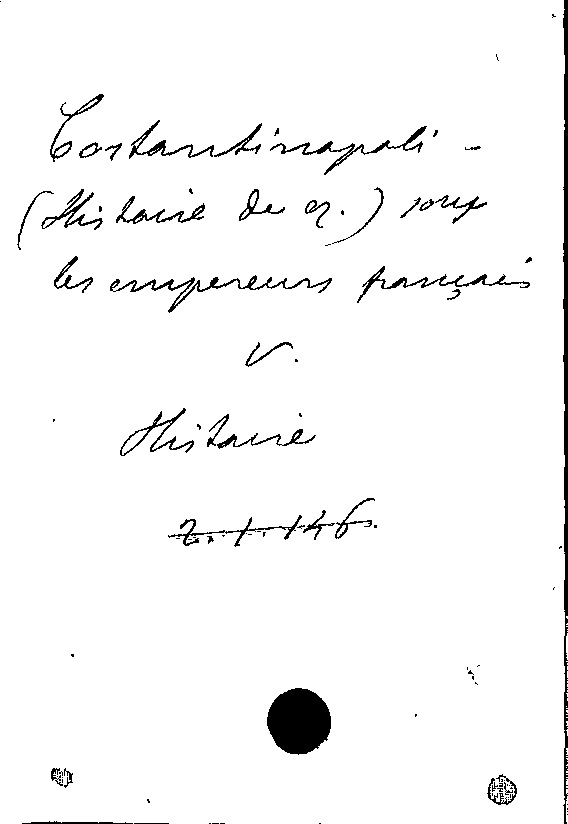 Costantinopoli -
(Histoire de        .) sous
les empereurs français
V.
Histoire
2.1.146.